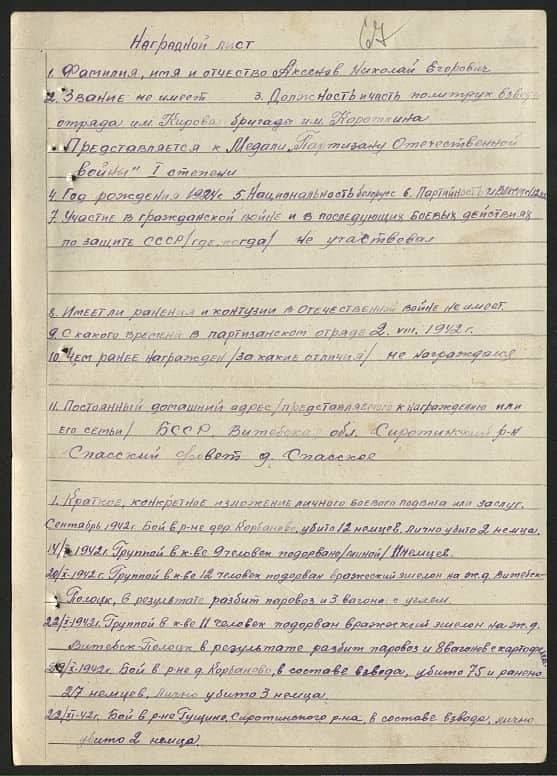 67
Наградной лист
1. Фамилия, имя и отчество Аксенов Николай Егорович
2. Звание не имеет 3. Должность и часть политрук взвода
отряда им. Кирова бригады им. Короткина
Представляется к Медали "Партизану Отечественной
войны" I степени
4. Год рождения 1924 г. 5. Национальность белорус 6. Партийность
7. Участие в гражданской войне и в последующих боевых действиях
по защите СССР /где, когда/ не участвовал
8. Имеет ли ранения и контузии в Отечественной войне не имеет.
9. С какого времени в партизанском отряде 2. VIII. 1942 г.
10. Чем ранее награжден /за какие отличия/ не награждался
11. Постоянный домашний адрес /представляемого к награждению или
его семьи/ БССР, Витебская обл. Сиротинский р-н
Спасский с/совет д. Спасское
1. Краткое, конкретное изложение личного боевого подвига или заслуг.
Сентябрь 1942 г. Бой в р-не дер. Корбаново, убито 12 немцев. Лично убито 2 немца.
1942 г. Группой в к-ве 9 человек подорвано /миной/ 11 немцев.
20/X-1942 г. Группой в к-ве 12 человек подорван вражеский эшелон на ж.д. Витебск-
Полоцк, в результате разбит паровоз и 3 вагона с углем.
22/X-1942 г. Группой в к-ве 11 человек подорван вражеский эшелон на ж.д.
Витебск-Полоцк в результате разбит паровоз и 8 вагонов с картофелем
29/X-1942 г. Бой в р-не д. Корбаново, в составе взвода, убито 75 и ранено
27 немцев. Лично убито 3 немца.
22/XI-42 г. Бой в р-не Гущино, Сиротинского р-на, в составе взвода, лично
убито 2 немца.